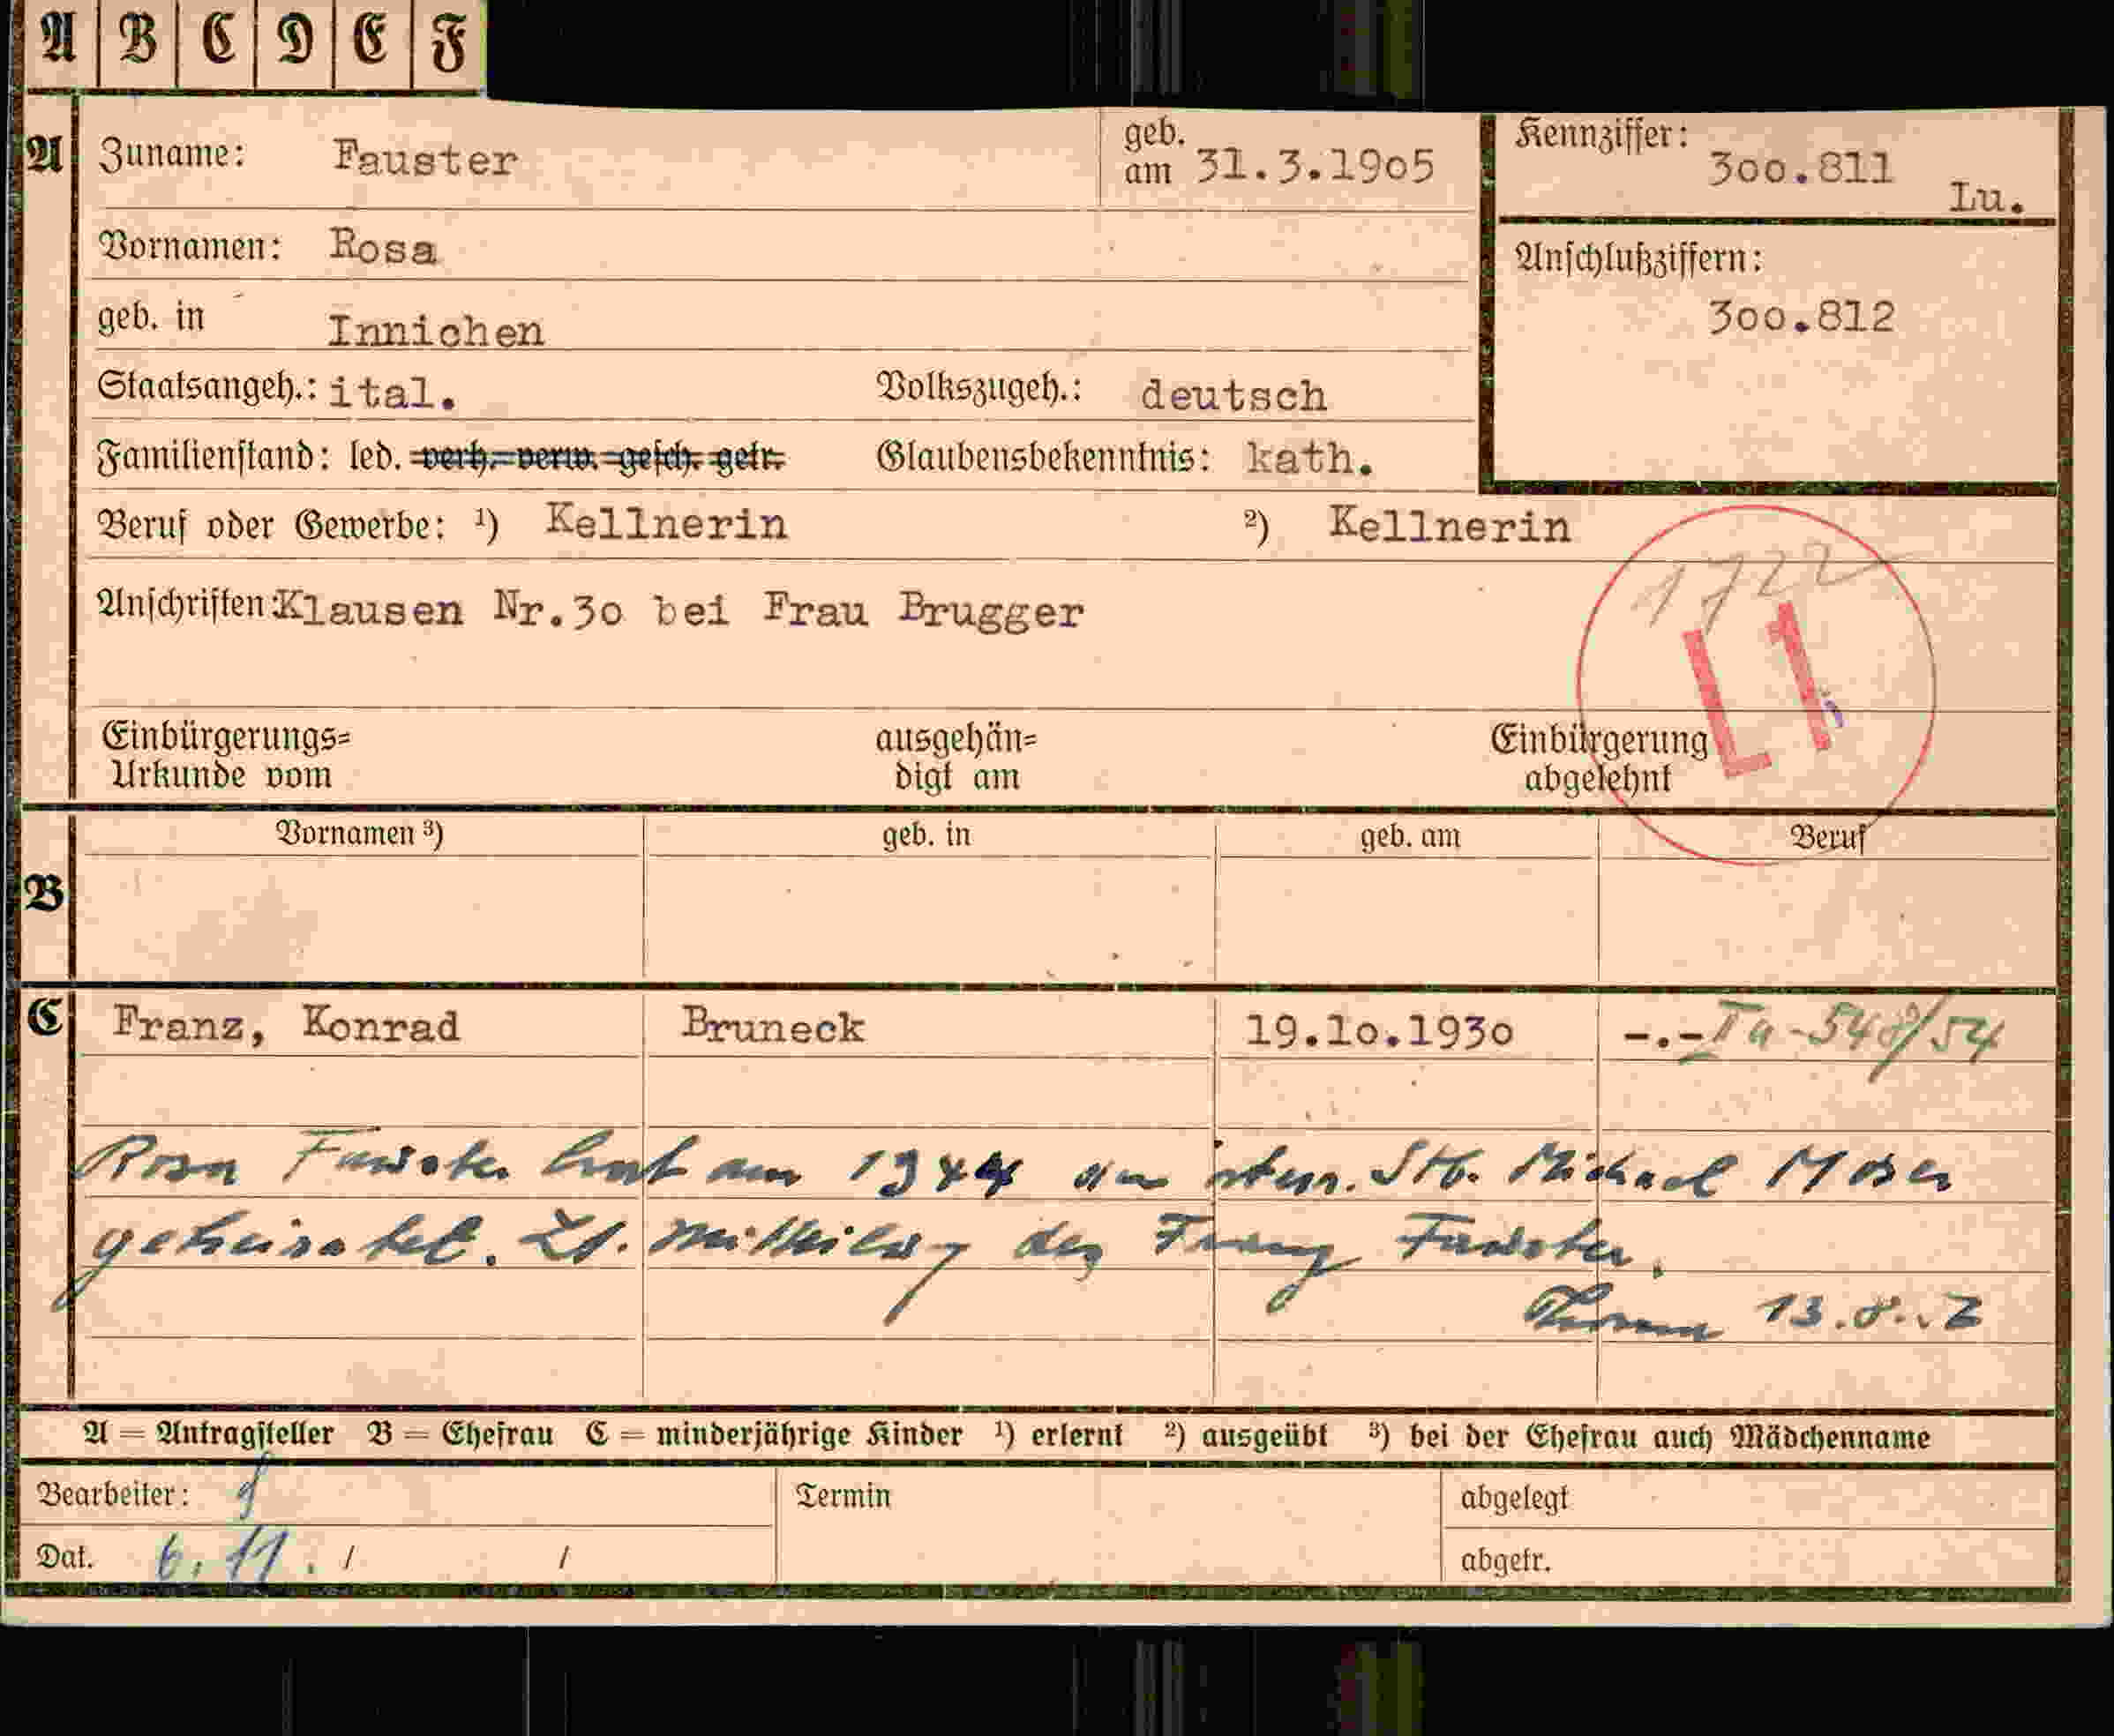 A B C D E F
A Zuname: Fauster geb. am 31.3.1905 Kennziffer: 3oo.811 Lu.
Vornamen: Rosa Anschlußziffern:
geb. in Innichen 3oo.812
Staatsangeh.: ital. Volkszugeh.: deutsch
Familienstand: led. verh. verw. gesch. getr. Glaubensbekenntnis: kath.
Beruf oder Gewerbe: ¹) Kellnerin ²) Kellnerin
1722
Anschriften: Klausen Nr.3o bei Frau Brugger
L1
Einbürgerungs= ausgehän= Einbürgerung
Urkunde vom digt am abgelehnt
Vornamen ³) geb. in geb. am Beruf
B
C Franz, Konrad Bruneck 19.1o.193o -.- 548/54
Rosa Fauster hat am 1944 den Stb. Michael Moser
geheiratet. Lt. Mitteilung des Franz Fauster.
13.8.
A = Antragsteller B = Ehefrau C = minderjährige Kinder ¹) erlernt ²) ausgeübt ³) bei der Ehefrau auch Mädchenname
Bearbeiter: Termin abgelegt
Dat. 6.11. / / abgetr.